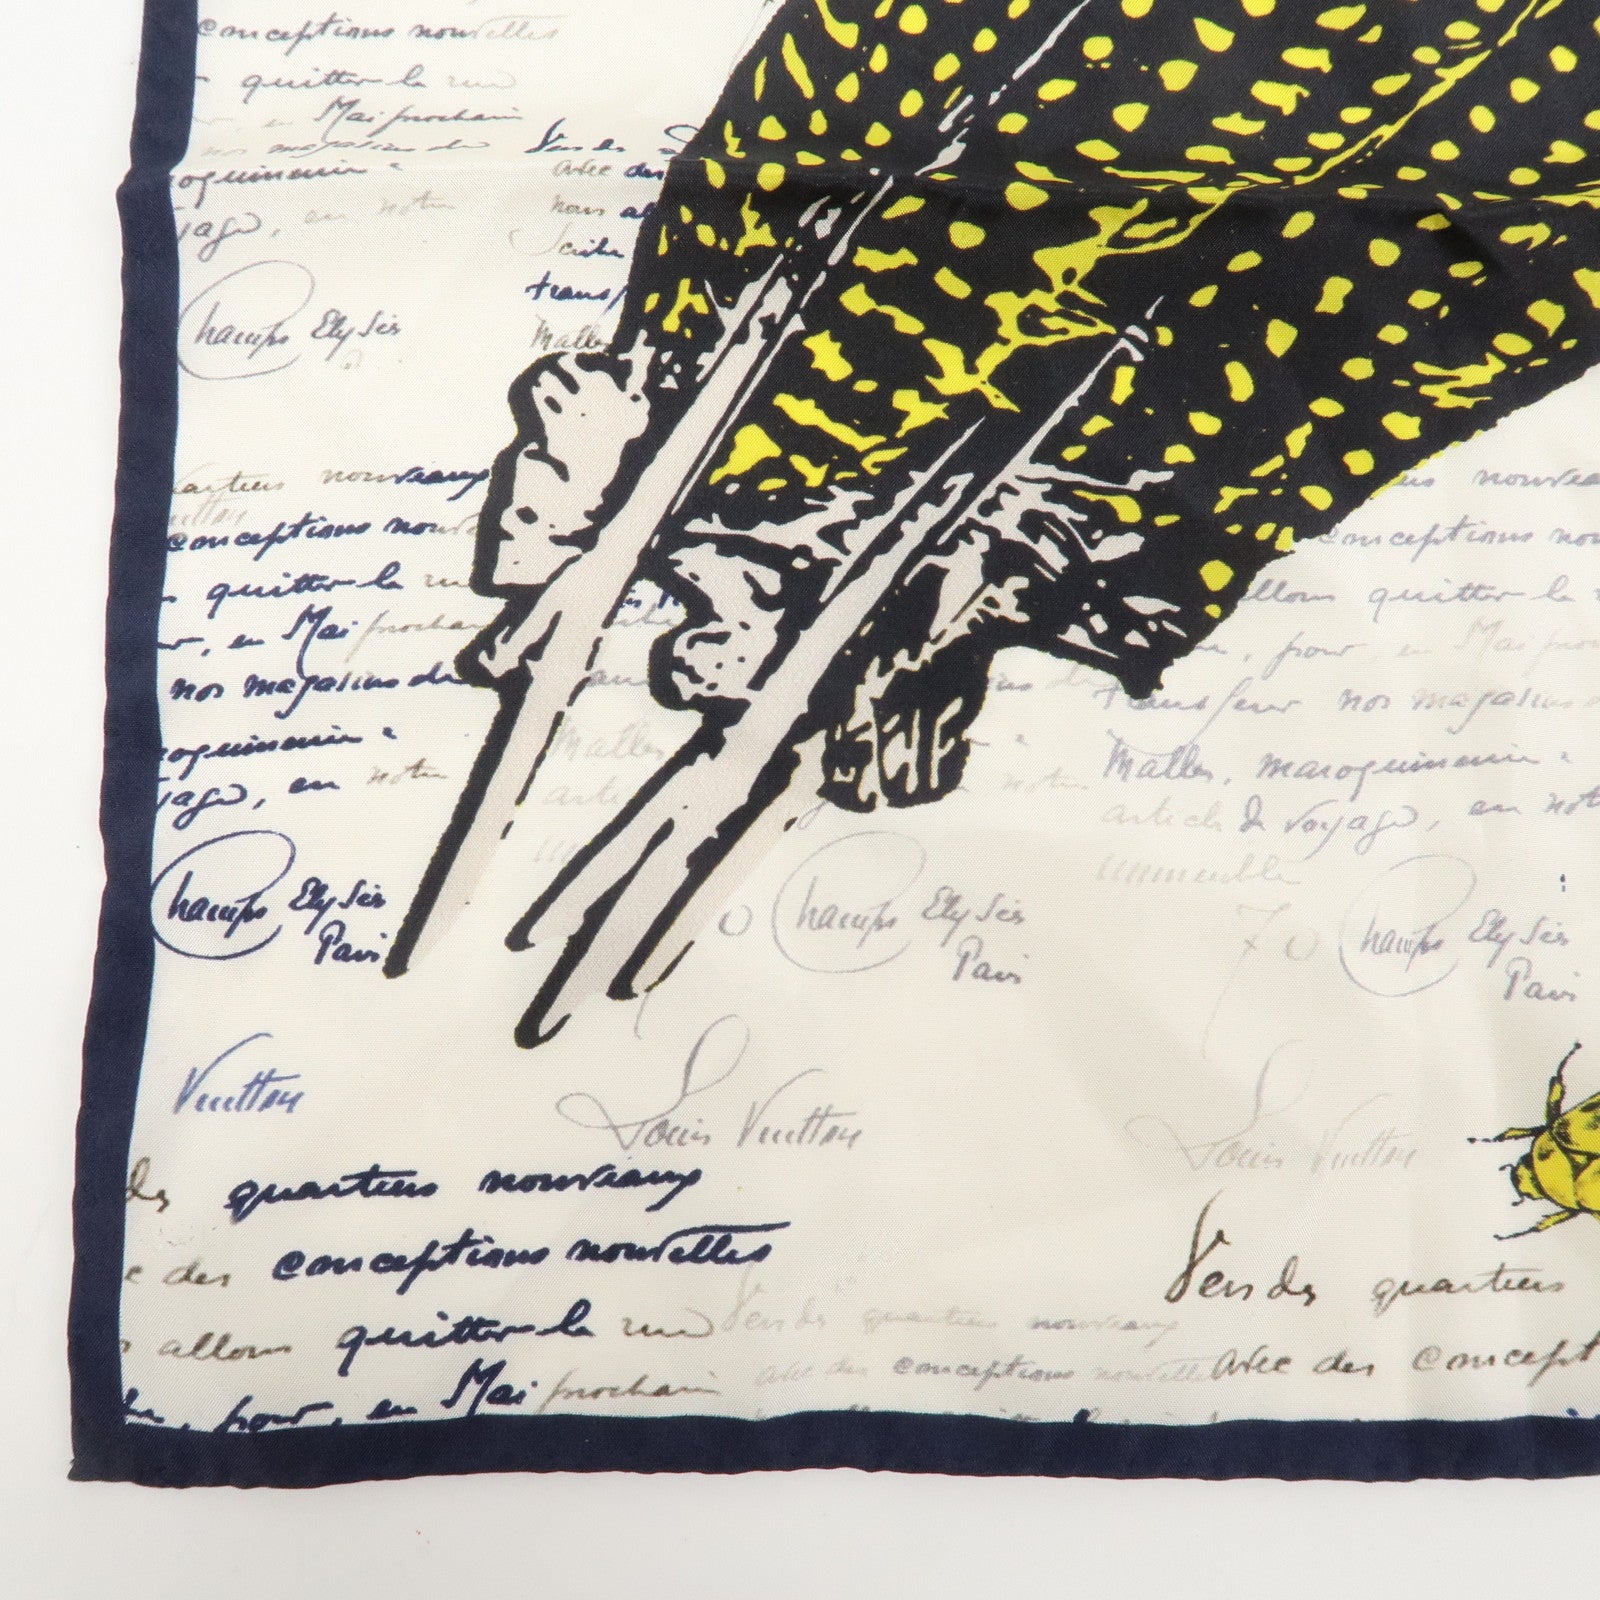 conceptions nouvelles
quitter la rue
en Mai prochain
nos magasins de
Vers les
oquinerie &
avec des
yage, en notre
nous al
Champs Elysées
transf
Malles
artiers nouveaux
uitton
conceptions nouve
us nouvea
conceptions nou
quitter la rue
allons quitter la
r, en Mai prochain
, pour en Mai pro
nos magasins de
transférer nos magasins d
oquinerie &
Malles
Malles, maroquinerie &
yage, en notre
arti
notre
article de voyage, en not
immeuble
Champs Elysées
Paris
0 Champs Elysées
Paris
70 Champs Elysées
Paris
Vuitton
Louis Vuitton
Louis Vuitton
des quartiers nouveaux
Vers des quartiers
c des conceptions nouvelles
Vers des quartiers nouveaux
s allons quitter la rue
avec des conceptions nouvelles
avec des concept
, pour, en Mai prochain